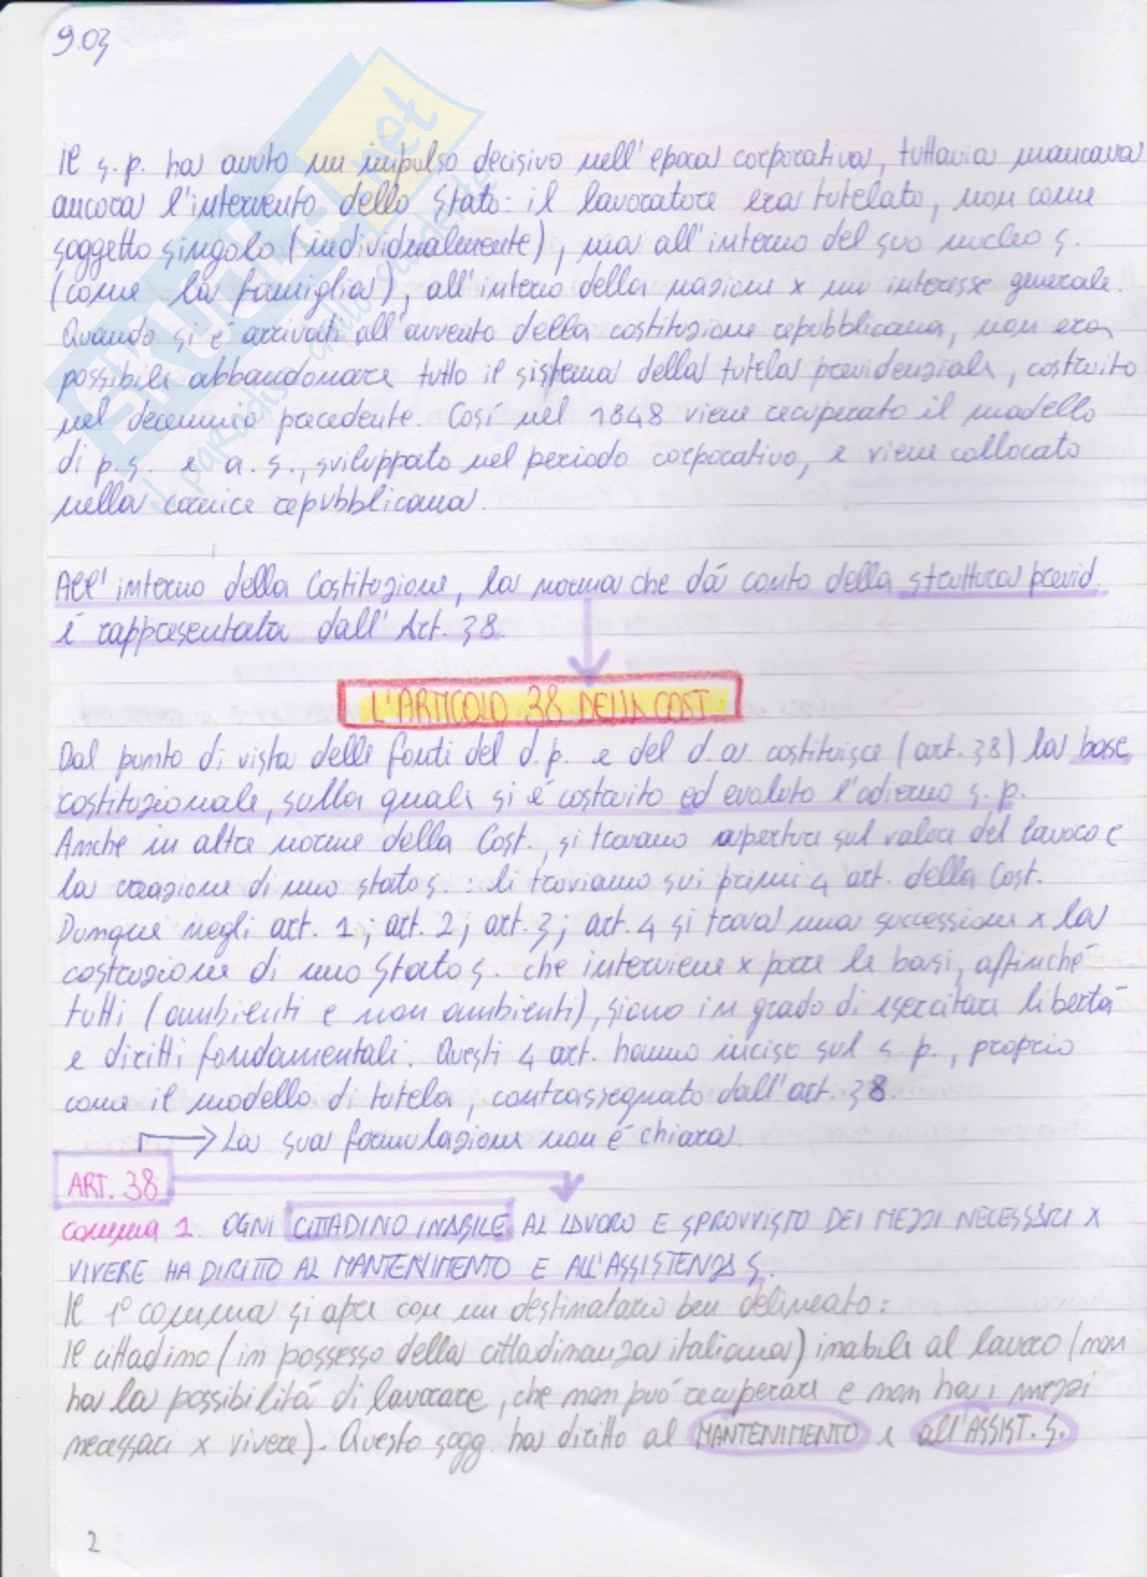 9.03
SKUOLA.net
Il s.p. ha avuto un impulso decisivo nell'epoca corporativa, tuttavia mancava
ancora l'intervento dello Stato: il lavoratore era tutelato, non come
soggetto singolo (individualmente), ma all'interno del suo nucleo s.
(come la famiglia), all'interno della nazione x un interesse generale.
Quando si è arrivati all'avvento della costituzione repubblicana, non era
possibile abbandonare tutto il sistema della tutela previdenziale, costruito
nel decennio precedente. Così nel 1848 viene recuperato il modello
di p.s. e a.s., sviluppato nel periodo corporativo, e viene collocato
nella cornice repubblicana.
All'interno della Costituzione, la norma che dà conto della struttura previd.
è rappresentata dall'Art. 38.
L'ARTICOLO 38 DELLA COST
Dal punto di vista delle fonti del d.p. e del d.a. costituisce (art. 38) la base
costituzionale, sulla quale si è costruito ed evoluto l'odierno s.p.
Anche in altre norme della Cost., si trovano aperture sul valore del lavoro e
la creazione di uno stato s. : li troviamo sui primi 4 art. della Cost.
Dunque negli art. 1; art. 2; art. 3; art. 4 si trova una successione x la
costruzione di uno Stato s. che interviene x porre le basi, affinché
tutti (ambienti e non ambienti), siano in grado di esercitare libertà
e diritti fondamentali. Questi 4 art. hanno inciso sul s.p., proprio
come il modello di tutela, contrassegnato dall'art. 38.
La sua formulazione non è chiara.
ART. 38
comma 1. OGNI CITTADINO INABILE AL LAVORO E SPROVVISTO DEI MEZZI NECESSARI X
VIVERE HA DIRITTO AL MANTENIMENTO E ALL'ASSISTENZA S.
Il 1° comma si apre con un destinatario ben delineato:
Il cittadino (in possesso della cittadinanza italiana) inabile al lavoro (non
ha la possibilità di lavorare, che non può recuperare e non ha i mezzi
necessari x vivere). Questo sogg. ha diritto al MANTENIMENTO e all'ASSIST. S.
2